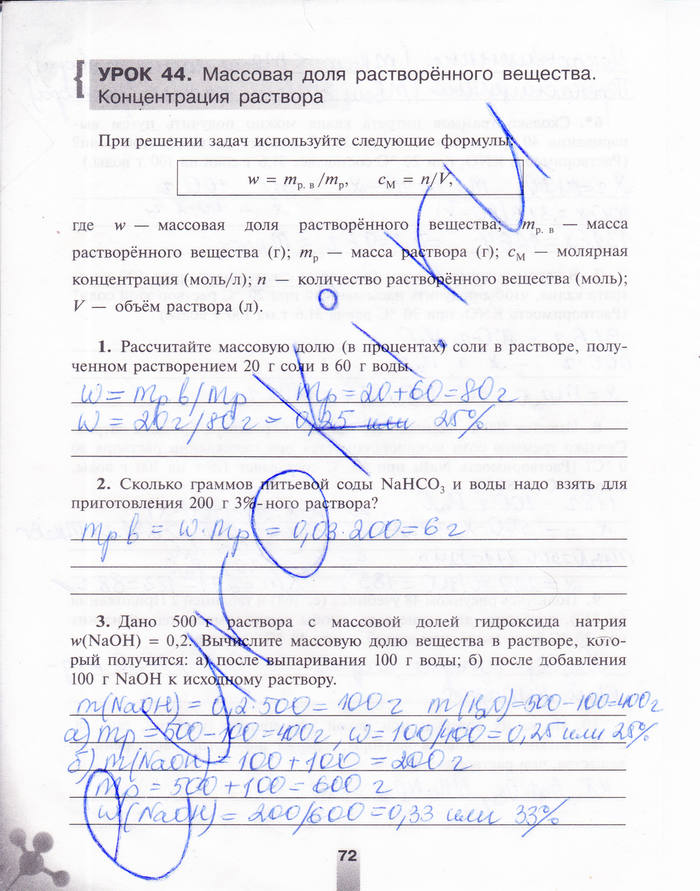 УРОК 44. Массовая доля растворённого вещества.
Концентрация раствора
При решении задач используйте следующие формулы:
w = mр. в/mр,   cМ = n/V,
где w — массовая доля растворённого вещества; mр. в — масса
растворённого вещества (г); mр — масса раствора (г); cМ — молярная
концентрация (моль/л); n — количество растворённого вещества (моль);
V — объём раствора (л).
1. Рассчитайте массовую долю (в процентах) соли в растворе, полу-
ченном растворением 20 г соли в 60 г воды.
w = mр в/mр   mр = 20+60=80 г
w = 20г/80г = 0,25 или 25%
2. Сколько граммов питьевой соды NaHCO3 и воды надо взять для
приготовления 200 г 3%-ного раствора?
mр в = w·mр = 0,03·200=6 г
3. Дано 500 г раствора с массовой долей гидроксида натрия
w(NaOH) = 0,2. Вычислите массовую долю вещества в растворе, кото-
рый получится: а) после выпаривания 100 г воды; б) после добавления
100 г NaOH к исходному раствору.
m(NaOH) = 0,2·500=100 г   m(H2O)=500-100=400г
а) mр = 500-100=400г, w = 100/400=0,25 или 25%
б) m(NaOH) = 100+100=200г
mр = 500+100=600 г
w (NaOH) = 200/600=0,33 или 33%
72